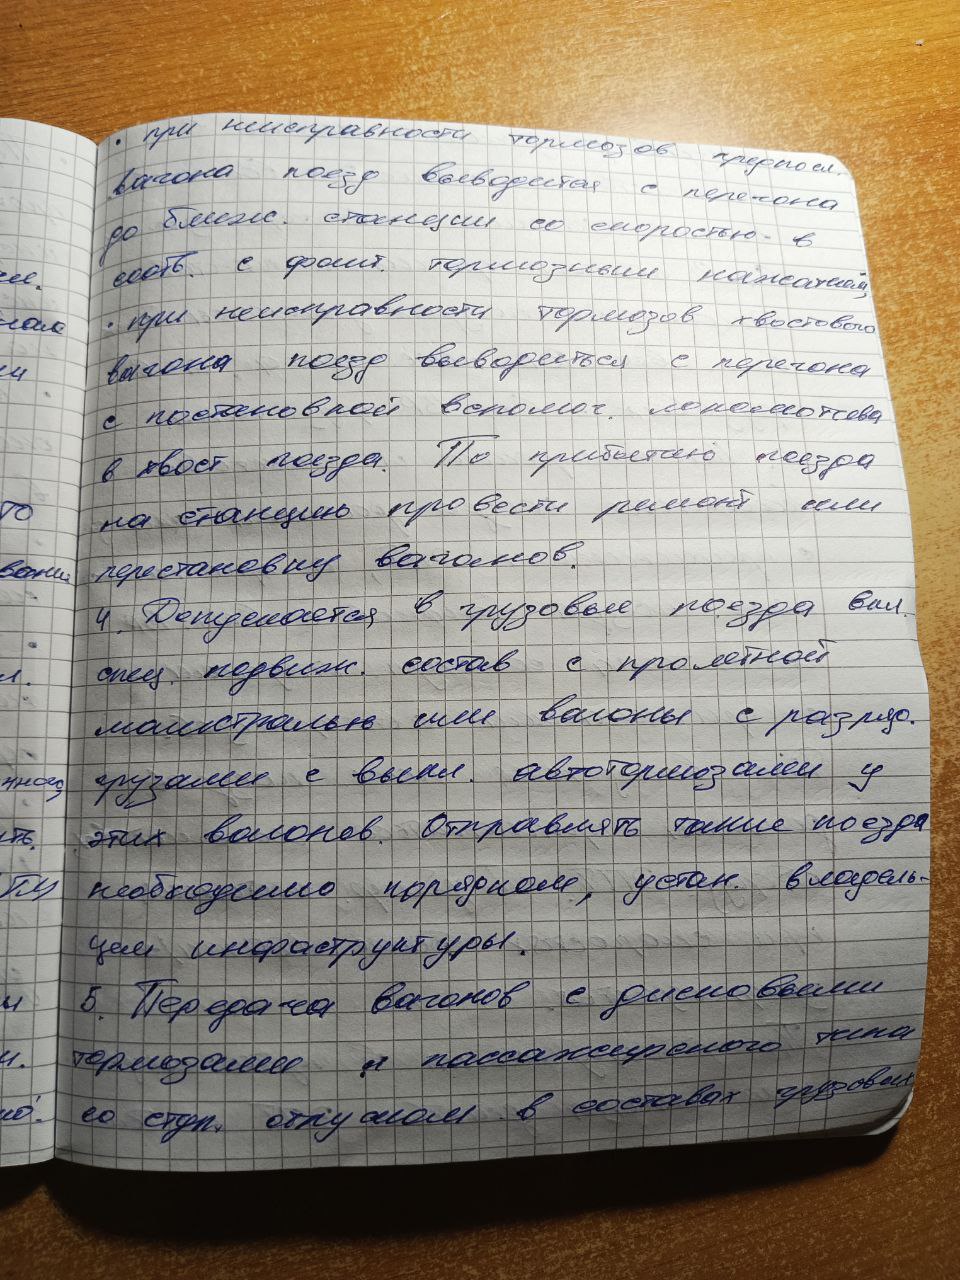 • при неисправности тормозов предпосл.
вагона поезд выводится с перегона
до ближ. станции со скоростью - в
соотв. с факт. тормозным нажатием,
• при неисправности тормозов хвостового
вагона поезд выводиться с перегона
с постановкой вспомог. локомотива
в хвост поезда. По прибытию поезда
на станцию провести ремонт или
перестановку вагонов.
4. Допускается в грузовые поезда вкл.
спец. подвиж. состав с пролетной
магистралью или вагоны с разряд.
грузами с выкл. автотормозами у
этих вагонов. Отправлять такие поезда
необходимо порядком, устан. владель-
цем инфраструктуры.
5. Передача вагонов с дисковыми
тормозами и пассажирского типа
со ступ. отпуском в составах грузовых